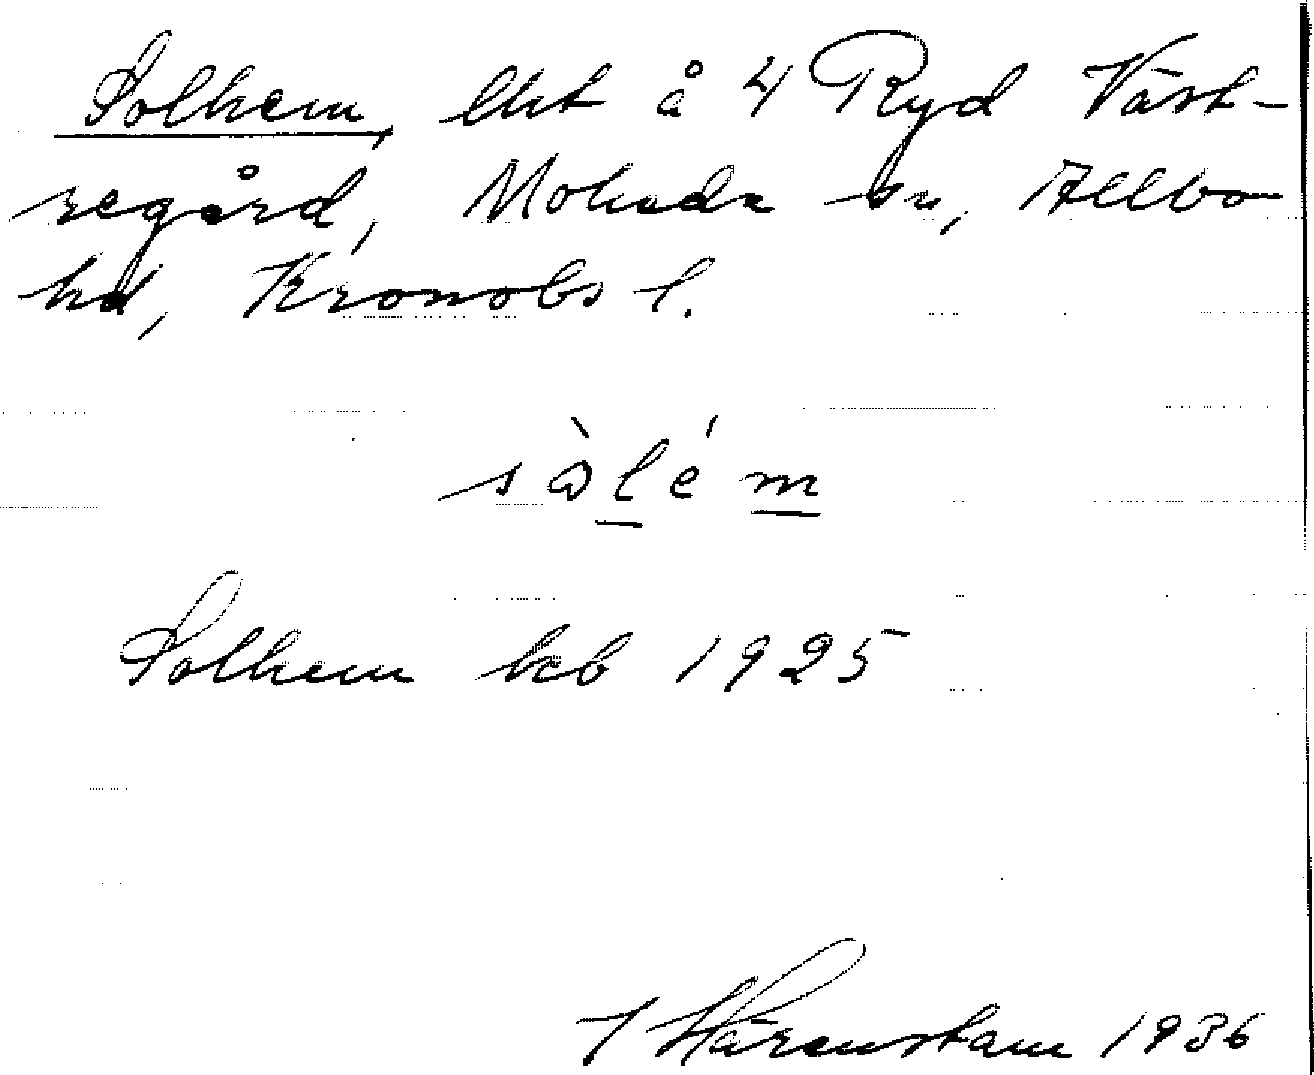 Solhem, lht å 4 Ryd Väst-
regård, Moheda sn, Allbo
hd, Kronobs l.
sòlém
Solhem kb 1925
J Härenstam 1936